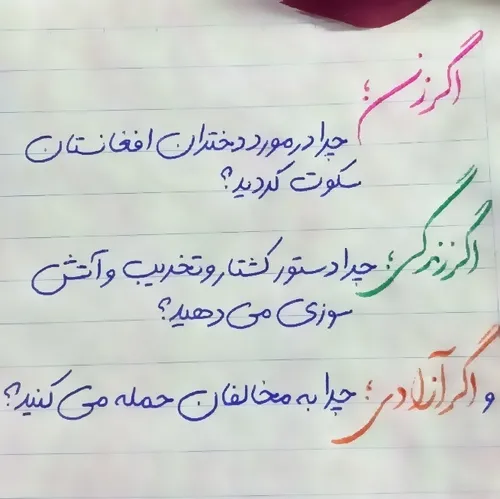 اگر زن؛
چرا در مورد دختران افغانستان
سکوت کردید؟
اگر زندگی؛ چرا دستور کشتار و تخریب و آتش
سوزی می دهید؟
و اگر آزادی؛ چرا به مخالفان حمله می کنید؟